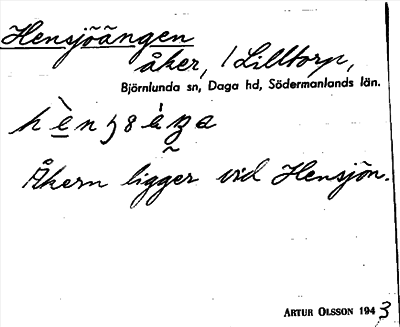 Hensjöängen
åker, / Lilltorp,
Björnlunda sn, Daga hd, Södermanlands län.
Åkern ligger vid Hensjön.
ARTUR OLSSON 1943